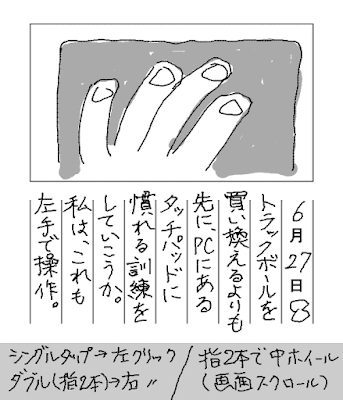 6月27日㊏
トラックボールを
買い換えるよりも
先に、PCにある
タッチパッドに
慣れる訓練を
していこうか。
私は、これも
左手で操作。
シングルタップ→左クリック
ダブル(指2本)→右〃
指2本で中ホイール
(画面スクロール)